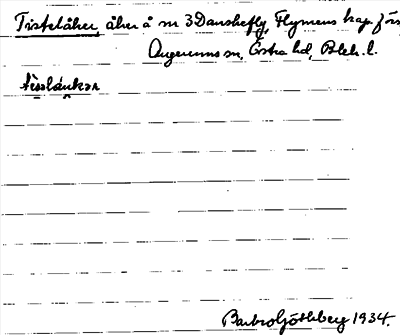 Tisteláker, åker å nr 3 Danskefly, Flymens kap. förs
Augerums sn, Östra hd, Blek. l.
tisslåukar
Barbro Göthberg 1934.